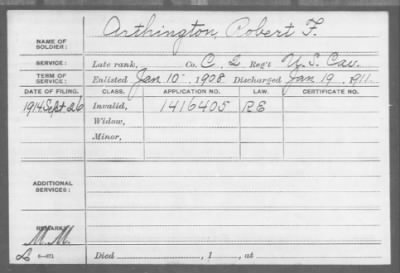 NAME OF SOLDIER: Arthington, Robert F.
SERVICE: Late rank, Co. C, 2 Reg't U.S. Cav.
TERM OF SERVICE: Enlisted Jan 10 - 1908 Discharged Jan 19. 1911.
DATE OF FILING. CLASS. APPLICATION NO. LAW. CERTIFICATE NO.
1914 Sept 26 Invalid, 1416405 RE
Widow,
Minor,
ADDITIONAL SERVICES:
REMARKS:
M.M.
Died , 1 , at